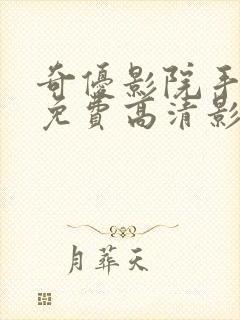 奇優影院手
免費高清影
月葬天